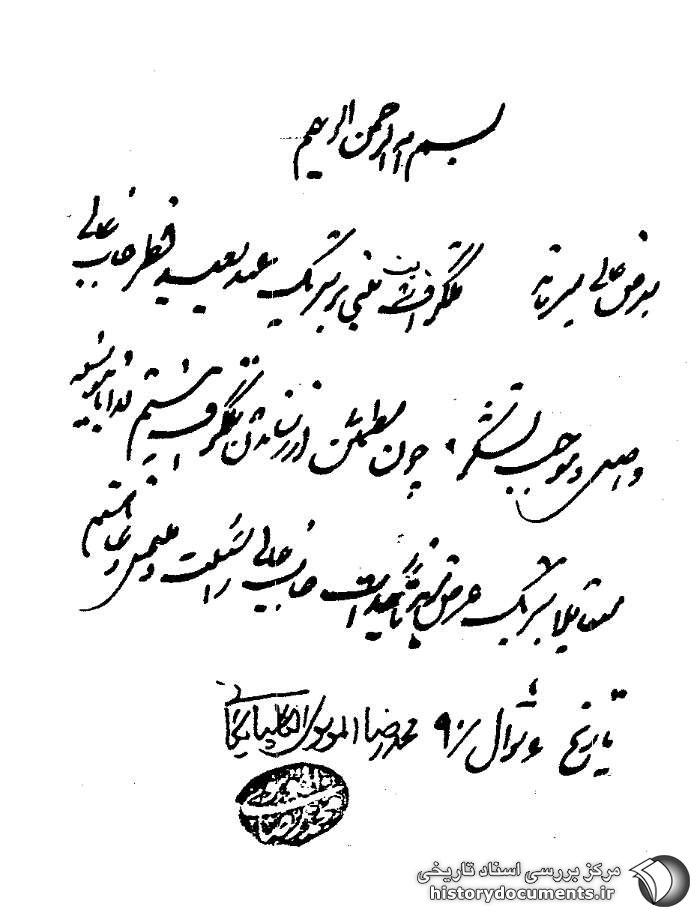 بسم الله الرحمن الرحیم
بعرض عالی میرساند تلگراف مبنی بر تبریک عید سعید فطر جنابعالی
واصل و موجب تشکر چون مطمئن از رساندن تلگراف نیستم لذا بدینوسیله
متقابلا تبریک عرض تأییدات جنابعالی را مسئلت و ملتمس دعا هستم
بتاریخ شوال ۹۰ محمدرضا الموسوی الگلپایگانی
مرکز بررسی اسناد تاریخی
historydocuments.ir